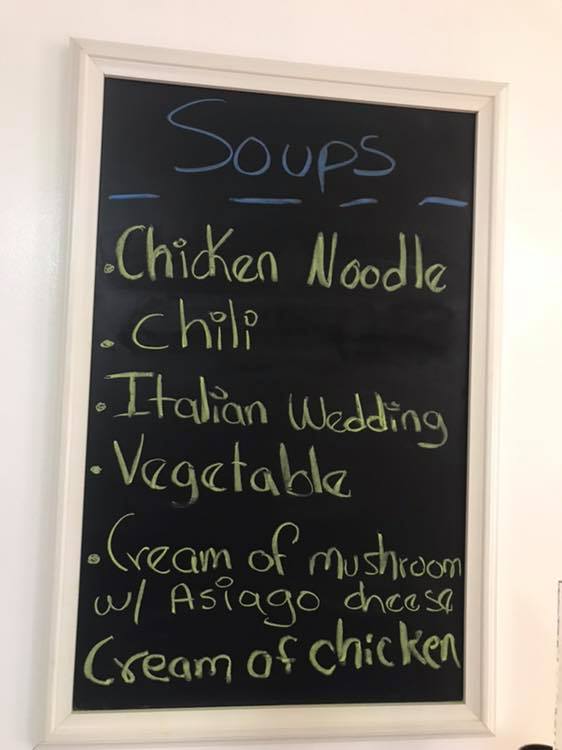 Soups
• Chicken Noodle
• Chili
• Italian Wedding
• Vegetable
• Cream of mushroom
w/ Asiago cheese
Cream of chicken